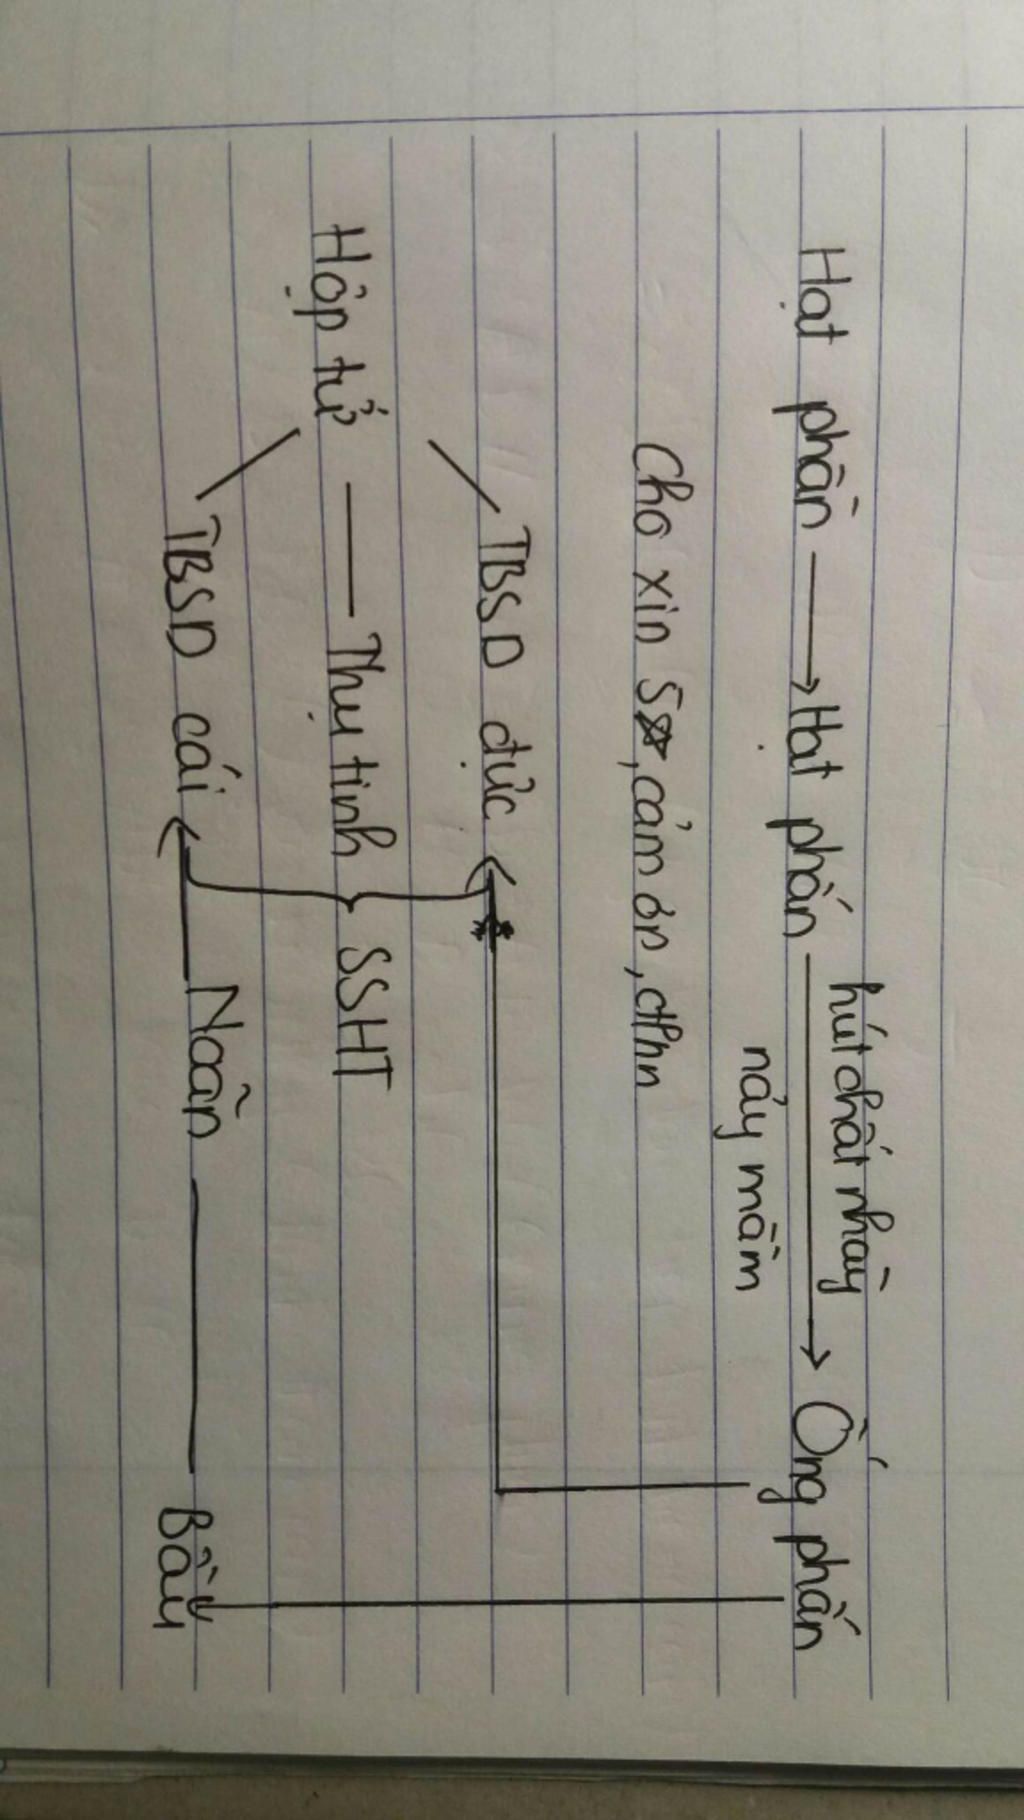 Hạt phấn → Hạt phấn → Ống phấn
hút chất nhầy
nảy mầm
Cho xin 5☆, cảm ơn, ctlhn
TBSD đực
Hợp tử — Thụ tinh } SSHT
TBSD cái ← Noãn — Bầu